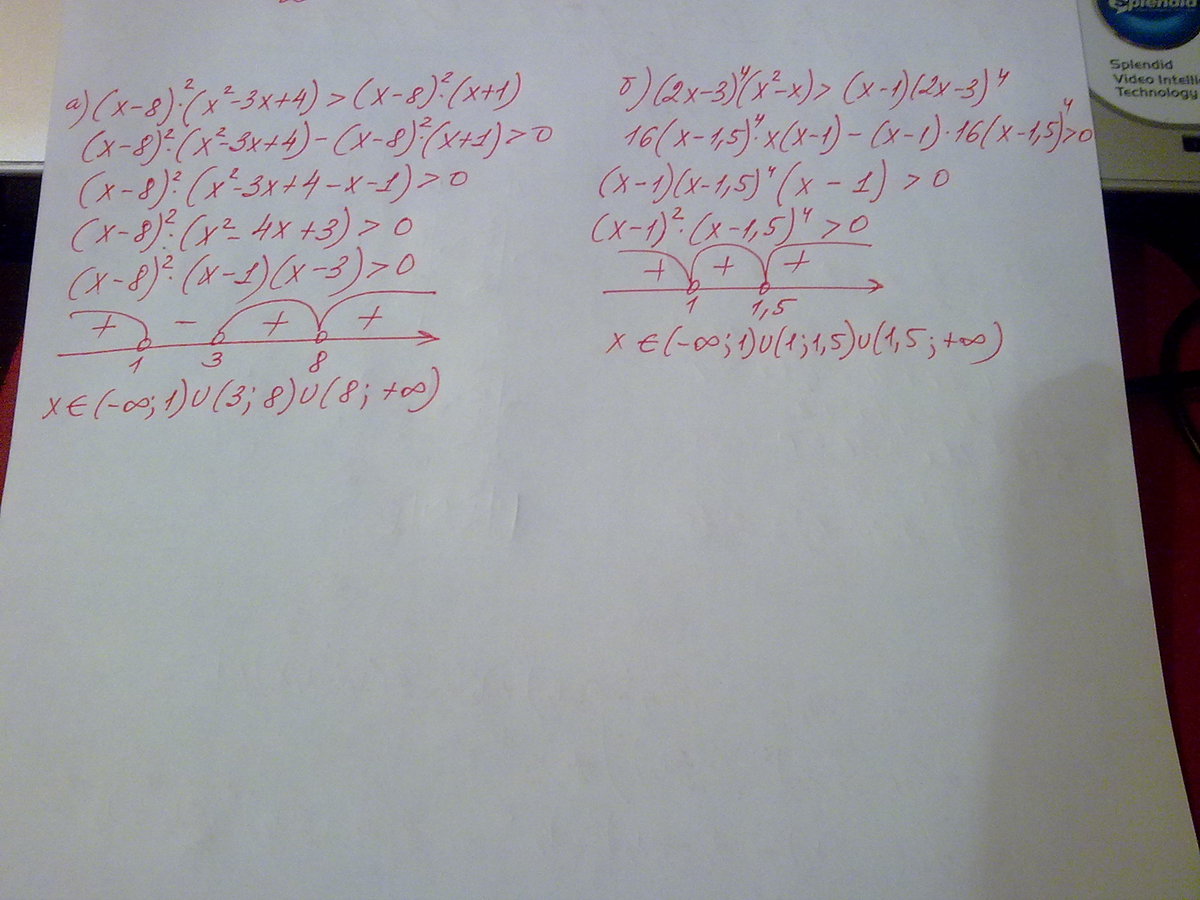 а) (x-8)²·(x²-3x+4) > (x-8)²·(x+1)
(x-8)²·(x²-3x+4) - (x-8)²·(x+1) > 0
(x-8)²·(x²-3x+4-x-1) > 0
(x-8)²·(x²-4x+3) > 0
(x-8)²·(x-1)(x-3) > 0
+ - + +
1 3 8
x ∈ (-∞; 1) ∪ (3; 8) ∪ (8; +∞)
б) (2x-3)⁴(x²-x) > (x-1)(2x-3)⁴
16(x-1,5)⁴·x(x-1) - (x-1)·16(x-1,5)⁴ > 0
(x-1)(x-1,5)⁴(x-1) > 0
(x-1)²·(x-1,5)⁴ > 0
+ + +
1 1,5
x ∈ (-∞; 1) ∪ (1; 1,5) ∪ (1,5; +∞)
Splendid
Splendid
Video Intelli
Technology